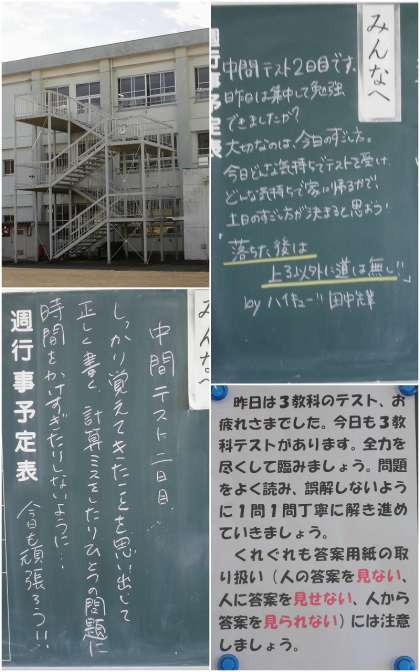 みんなへ
週行事予定表
中間テスト2日目です。
昨日は集中して勉強
できましたか?
大切なのは、今日のすごし方。
今日どんな気持ちでテストを受け、
どんな気持ちで家に帰るかで、
土日のすごし方が決まると思よう!
「落ちた後は
上る以外に道は無い!」
by ハイキュー!! 田中先輩
みんなへ
中間テスト二日目…
しっかり覚えてきたことを思い出して
正しく書く、計算ミスをしたりひとつの問題に
時間をかけすぎたりしないように…
今日も頑張ろう!!
週行事予定表
昨日は3教科のテスト、お
疲れさまでした。今日も3教
科テストがあります。全力を
尽くして臨みましょう。問題
をよく読み、誤解しないように
1問1問丁寧に解き進め
ていきましょう。
くれぐれも答案用紙の取
り扱い(人の答案を見ない、
人に答案を見せない、人から
答案を見られない)には注意
しましょう。